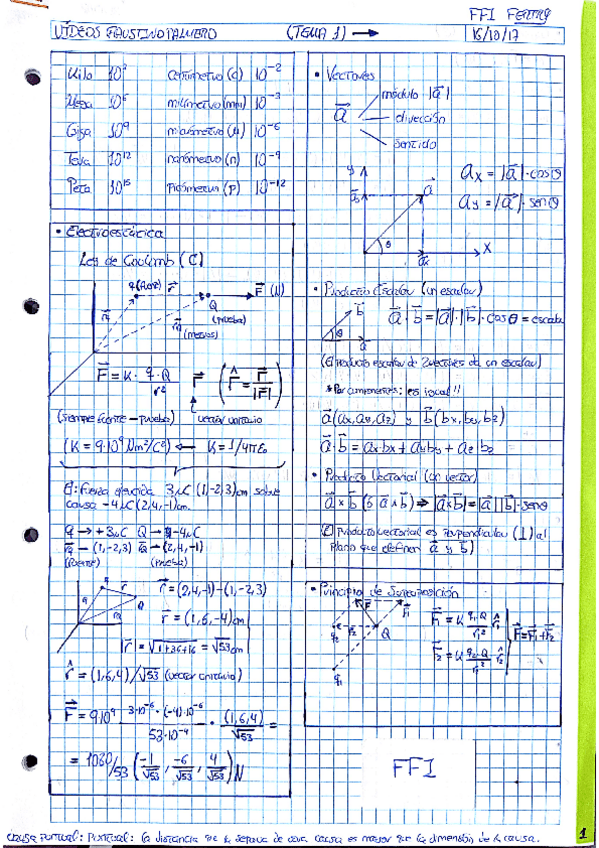 FFI
VÍDEOS FAUSTINO PALMERO (TEMA 1) →
16/10/17
Kilo 10³ Centímetro (c) 10⁻²
Mega 10⁶ milímetro (mm) 10⁻³
Giga 10⁹ micrómetro (μ) 10⁻⁶
Tera 10¹² nanómetro (n) 10⁻⁹
Peta 10¹⁵ Picómetro (p) 10⁻¹²
• Electroestática
Ley de Coulomb (C)
q (foco) r⃗ F⃗ (N)
Q
(prueba)
(metros)
F⃗ = K · q · Q / r² r̂ ( r̂ = r⃗ / |r⃗| )
(siempre fuente - prueba) vector unitario
(K = 9·10⁹ Nm²/C²) ← K = 1/4πε₀
Ej: fuerza ejercida 3μC (1,-2,3)cm sobre
carga -4μC (2,4,-1)cm.
q → +3μC Q → -4μC
r⃗q → (1,-2,3) r⃗Q → (2,4,-1)
(fuente) (prueba)
r⃗ = (2,4,-1) - (1,-2,3)
r⃗ = (1,6,-4)cm
|r⃗| = √1+36+16 = √53cm
r̂ = (1,6,4)/√53 (vector unitario)
F⃗ = 9·10⁹ 3·10⁻⁶ · (-4)·10⁻⁶ / 53·10⁻⁴ · (1,6,4) / √53 =
= 1080/53 (-1/√53, -6/√53, 4/√53) N
• Vectores
módulo |a⃗|
a⃗ dirección
sentido
y a⃗
ax = |a⃗| · cosθ
ay = |a⃗| · senθ
θ ax x
• Producto Escalar (un escalar)
b⃗ a⃗ · b⃗ = |a⃗| · |b⃗| · cosθ = escalar
θ a⃗
(El producto escalar de 2 vectores da un escalar)
*Por componentes: es igual!!
a⃗ (ax, ay, az) y b⃗ (bx, by, bz)
a⃗ · b⃗ = axbx + ayby + az bz
• Producto Vectorial (un vector)
a⃗ × b⃗ (ó a⃗ ∧ b⃗) ⇒ |a⃗×b⃗| = |a⃗| |b⃗| · senθ
(El producto vectorial es perpendicular (⊥) al
plano que definen a⃗ y b⃗)
• Principio de Superposición
F⃗ F⃗₁
F⃗₂ Q
q₂
q₁
F⃗₁ = K q₁·Q / r₁² r̂₁
F⃗₂ = K q₂·Q / r₂² r̂₂
F⃗ = F⃗₁ + F⃗₂
FFI
Carga puntual: Puntual: la distancia que la separa de otra carga es mayor que la dimensión de la carga.
1